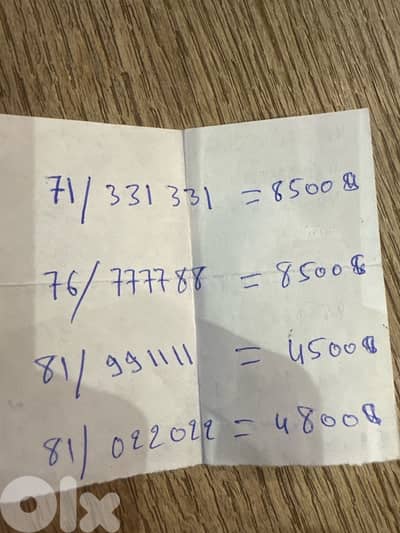 71/ 331 331 = 8500$
76/ 777788 = 8500$
81/ 991111 = 4500$
81/ 022022 = 4800$
olx